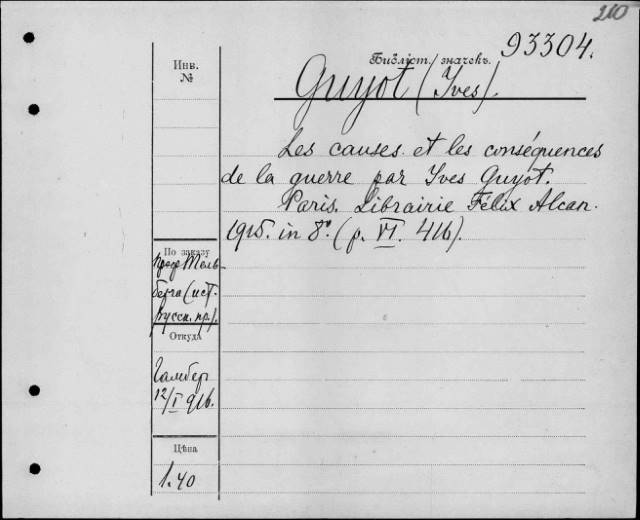 210
93304.
Библіот. значекъ.
Инв.
№
Guyot (Yves).
Les causes et les conséquences
de la guerre par Yves Guyot.
Paris. Librairie Félix Alcan.
1915. in 8°. (p. VI. 416).
По заказу
проф. Тель-
берга (ист.
русск. пр.).
Откуда
Гамбер
12/I 916.
Цѣна
1.40